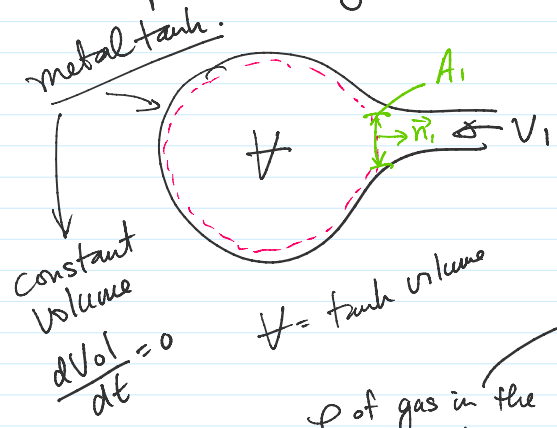 metal tank.
A₁
n⃗₁
V₁
V
constant
volume
dVol/dt = 0
V = tank volume
ρ of gas in the